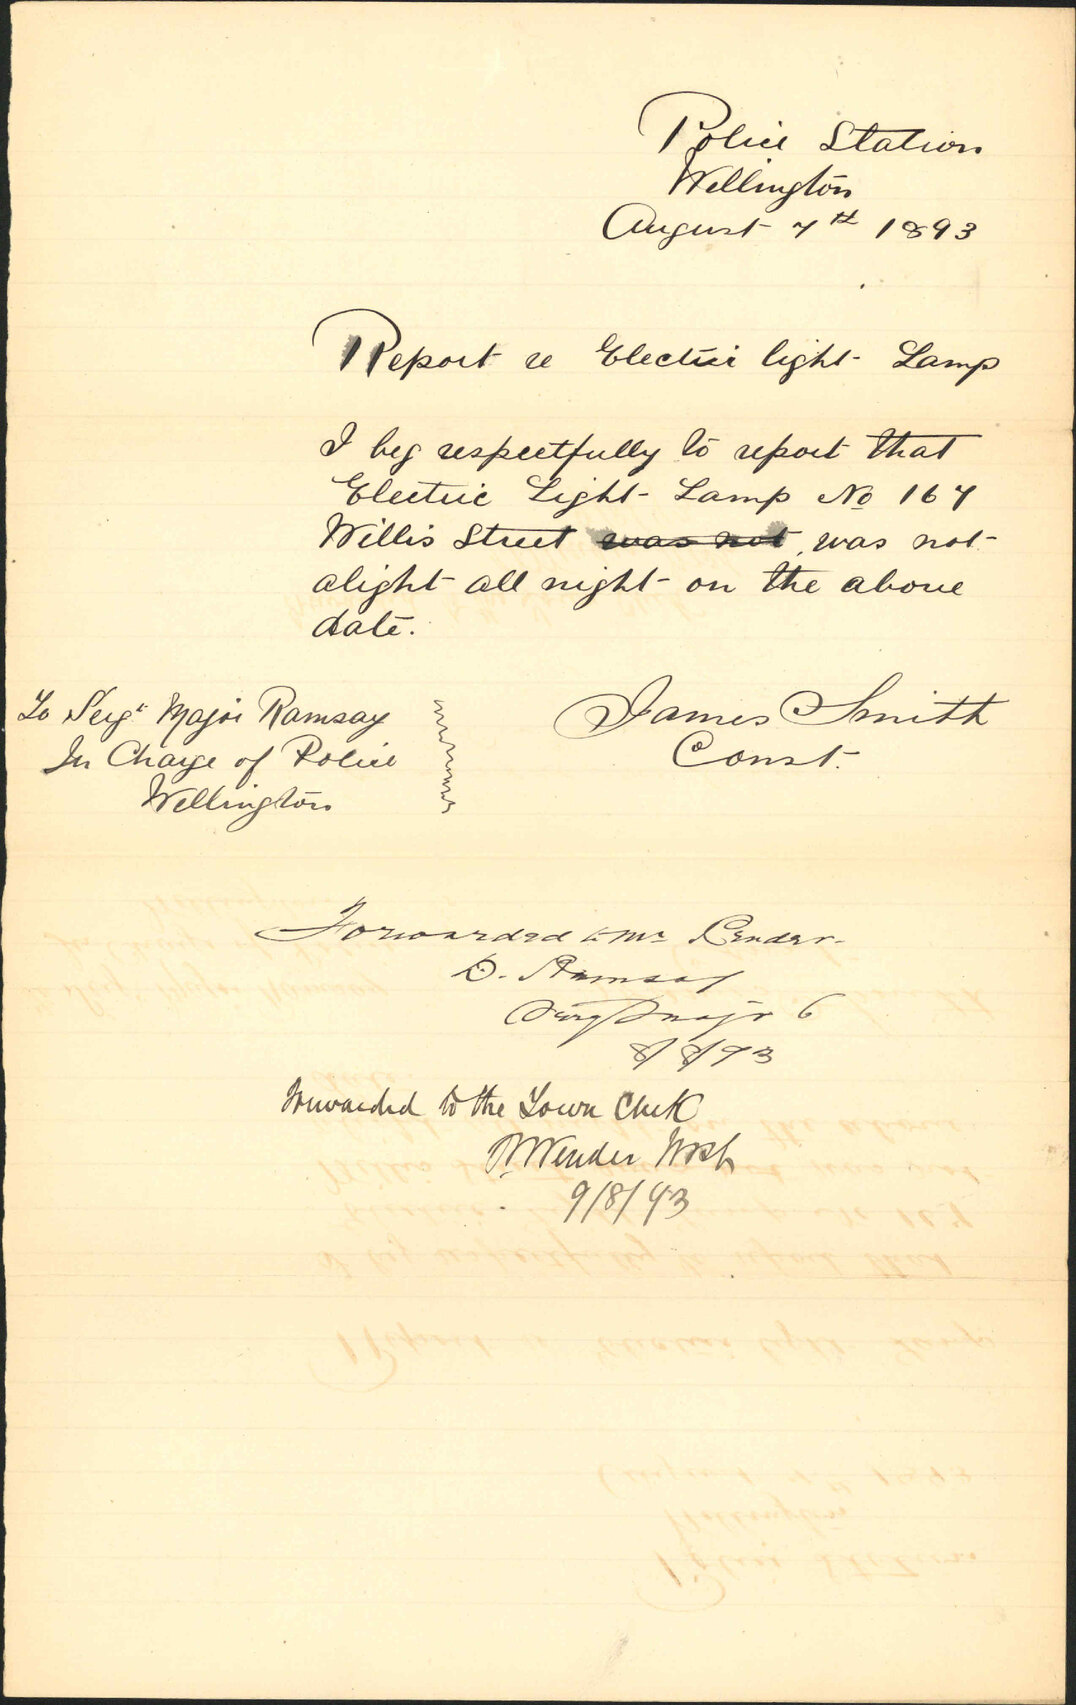 Police Station
Wellington
August 7th 1893
Report re Electric light Lamp
I beg respectfully to report that
Electric Light Lamp No 167
Willis Street was not, was not
alight all night on the above
date.
James Smith
Const.
To Sergt Major Ramsay
In Charge of Police
Wellington
Forwarded to Mr
D. Ramsay
Sergt Major 6
8/8/93
Forwarded to the Town Clerk
9/8/93